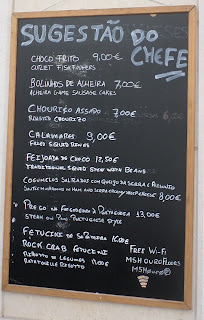 SUGESTÃO DO
CHEFE
CHOCO FRITO 9,00€
CUTLET FISH FINGERS
BOLINHOS DE ALHEIRA 7,00€
ALHEIRA GAME SAUSAGE CAKES
CHOURIÇO ASSADO 7,00€
ROASTED CHOURIZO
CALAMARES 9,00€
FRIED SQUID RINGS
FEIJOADA DE CHOCO 12,50€
TRADITIONAL SQUID STEW WITH BEANS
COGUMELOS SALTEADOS COM QUEIJO DA SERRA E PRESUNTO
HAM AND SERRA CHEESE 8,00€
PREGO NA FRIGIDEIRA À PORTUGUESA 13,00€
STEAK ON PAN PORTUGUESE STYLE
FETUCINE DE SAPATEIRA
ROCK CRAB FETUCINI
RISOTTO DE LEGUMES 11,00€
RATATOUILLE RISOTTO
FREE WI-FI